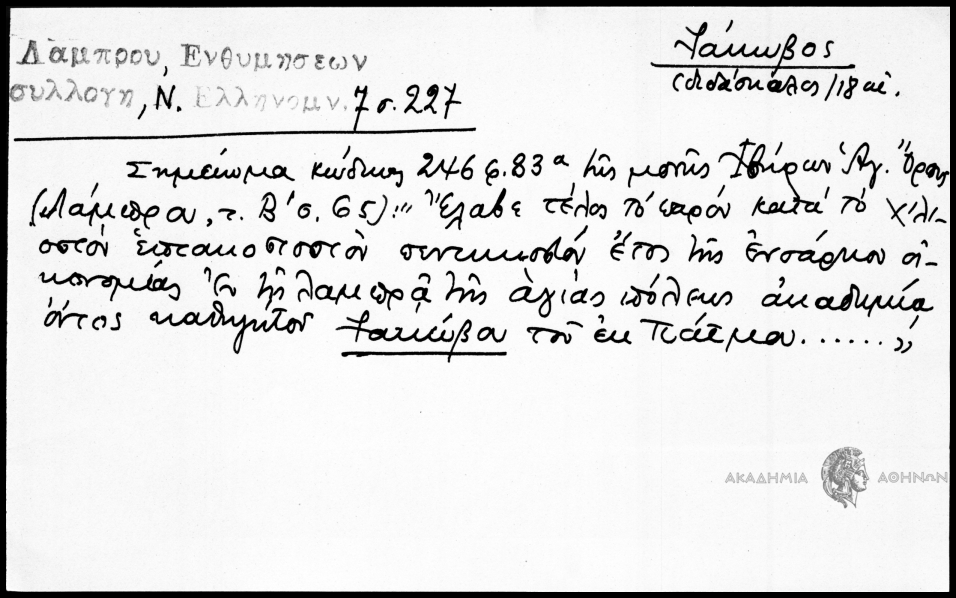 Λάμπρου, Ενθυμήσεων
συλλογή, Ν. Ελληνομν. 7 σ. 227
Ἰάκωβος
(διδάσκαλος/18 αἰ.
Σημείωμα κώδικος 246 φ. 83α τῆς μονῆς Ἰβήρων Ἁγ. Ὄρους
(Λάμπρου, τ. Β' σ. 65): "Ἔλαβε τέλος τό παρόν κατά τό χιλι-
οστόν ἑπτακοσιοστόν πεντηκοστόν ἔτος τῆς ἐνσάρκου οἰ-
κονομίας ἐν τῇ λαμπρᾷ τῆς ἁγίας πόλεως ἀκαδημίᾳ
ὄντος καθηγητοῦ Ἰακώβου τοῦ ἐκ Πάτμου......"
ΑΚΑΔΗΜΙΑ ΑΘΗΝΩΝ